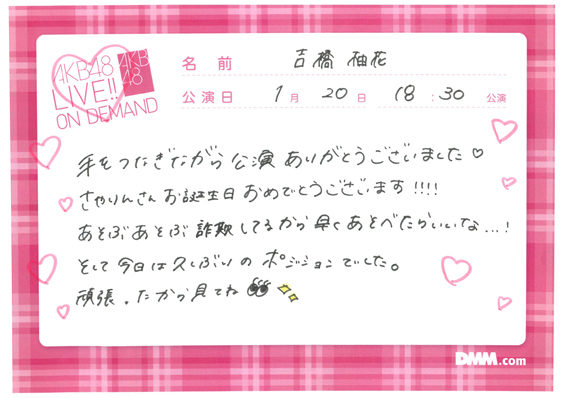 AKB48
LIVE!!
ON DEMAND
AKB
48
名前 吉橋 柚花
公演日 1月 20日 18:30 公演
手をつなぎながら公演 ありがとうございました♡
さやりんさん お誕生日 おめでとうございます!!!!
あそぶあそぶ 詐欺してるから早くあそべたらいいな...!
そして今日は久しぶりのポジションでした。
頑張ったから見てね
DMM.com